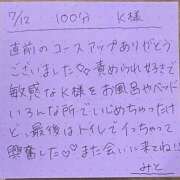 7/12 100分 K様
直前のコースアップありがとう
ございました♡責められ好きで
敏感なK様をお風呂やベッド
いろんな所でいじめちゃったけ
ど、最後はトイレでイっちゃって
興奮した♡♡また会いに来てね!!
みと